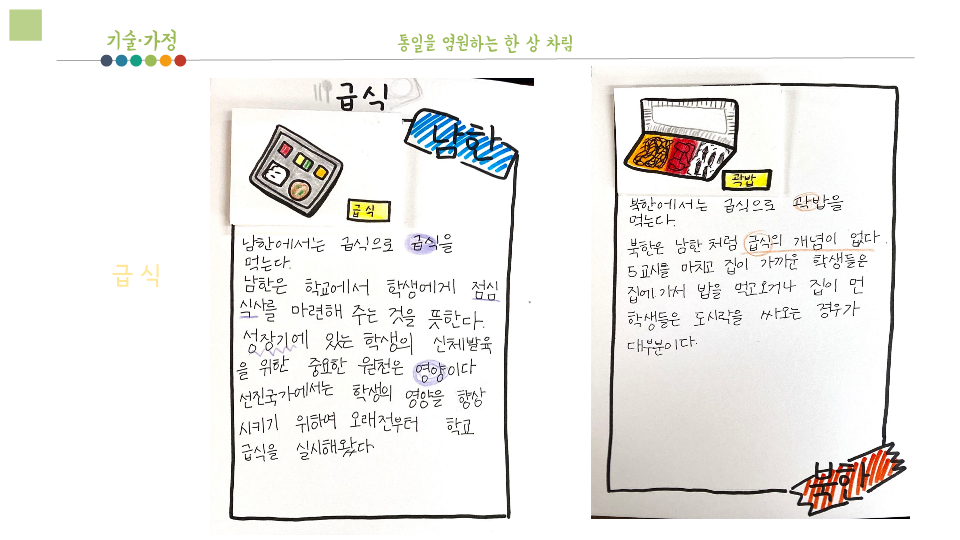 기술·가정
통일을 염원하는 한 상 차림
급식
급식
남한
급식
남한에서는 급식으로 급식을
먹는다.
남한은 학교에서 학생에게 점심
식사를 마련해 주는 것을 뜻한다.
성장기에 있는 학생의 신체발육
을 위한 중요한 원천은 영양이다
선진국가에서는 학생의 영양을 향상
시키기 위하여 오래전부터 학교
급식을 실시해왔다
곽밥
북한에서는 급식으로 곽밥을
먹는다.
북한은 남한처럼 급식의 개념이 없다.
5교시를 마치고 집이 가까운 학생들은
집에 가서 밥을 먹고오거나 집이 먼
학생들은 도시락을 싸오는 경우가
대부분이다.
북한